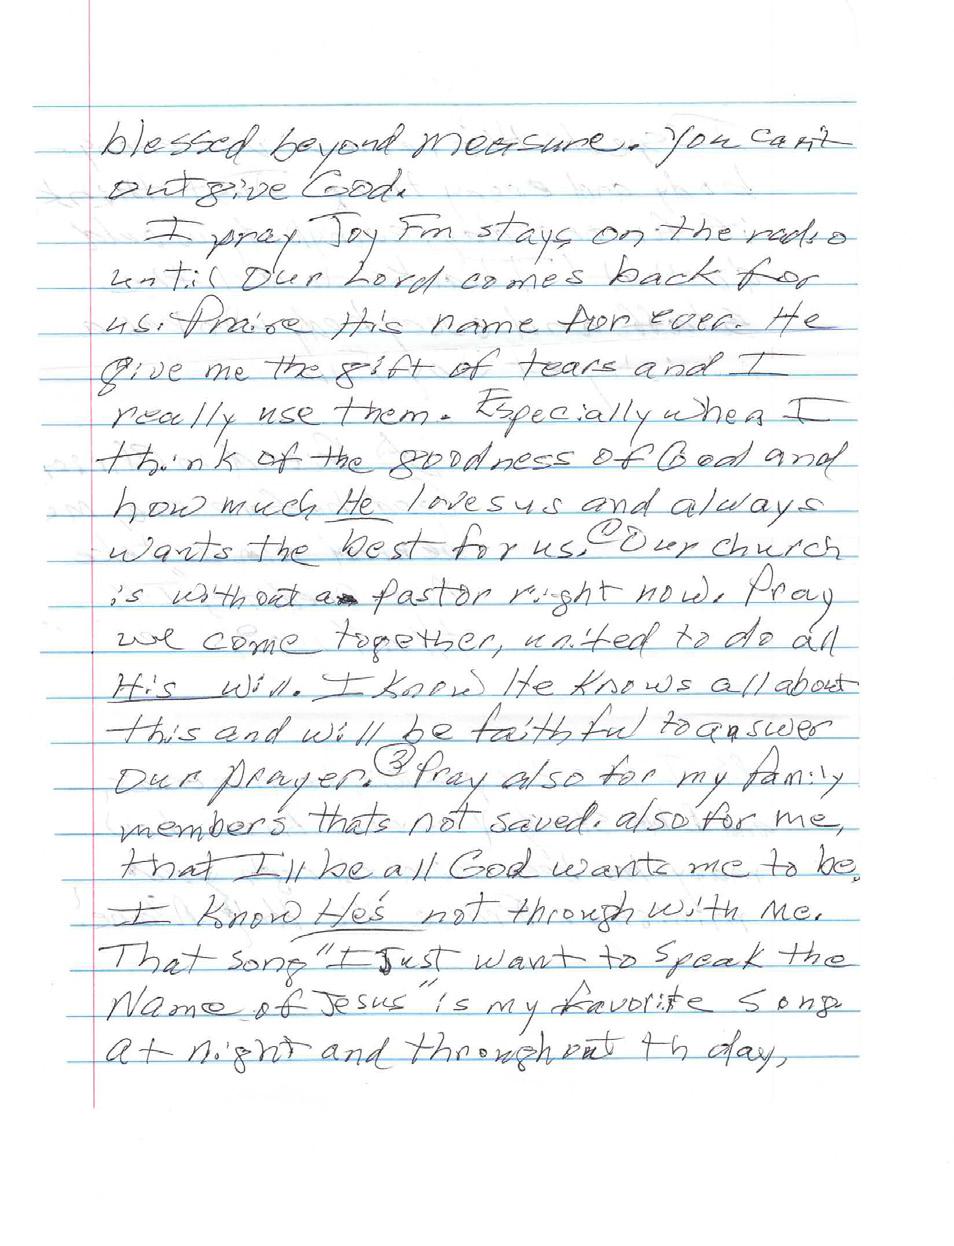 blessed beyond measure. You can't
outgive God.
I pray Joy Fm stays on the radio
until Our Lord comes back for
us. Praise His name for ever. He
give me the gift of tears and I
really use them. Especially when I
think of the goodness of God and
how much He loves us and always
wants the best for us. ① Our church
is without a pastor right now. Pray
we come together, united to do all
His will. I know He knows all about
this and will be faithful to answer
Our prayer. ② Pray also for my family
members thats not saved. also for me,
that I'll be all God wants me to be.
I know He's not through with me.
That song "I Just want to speak the
Name of Jesus" is my favorite song
at night and throughout th day,